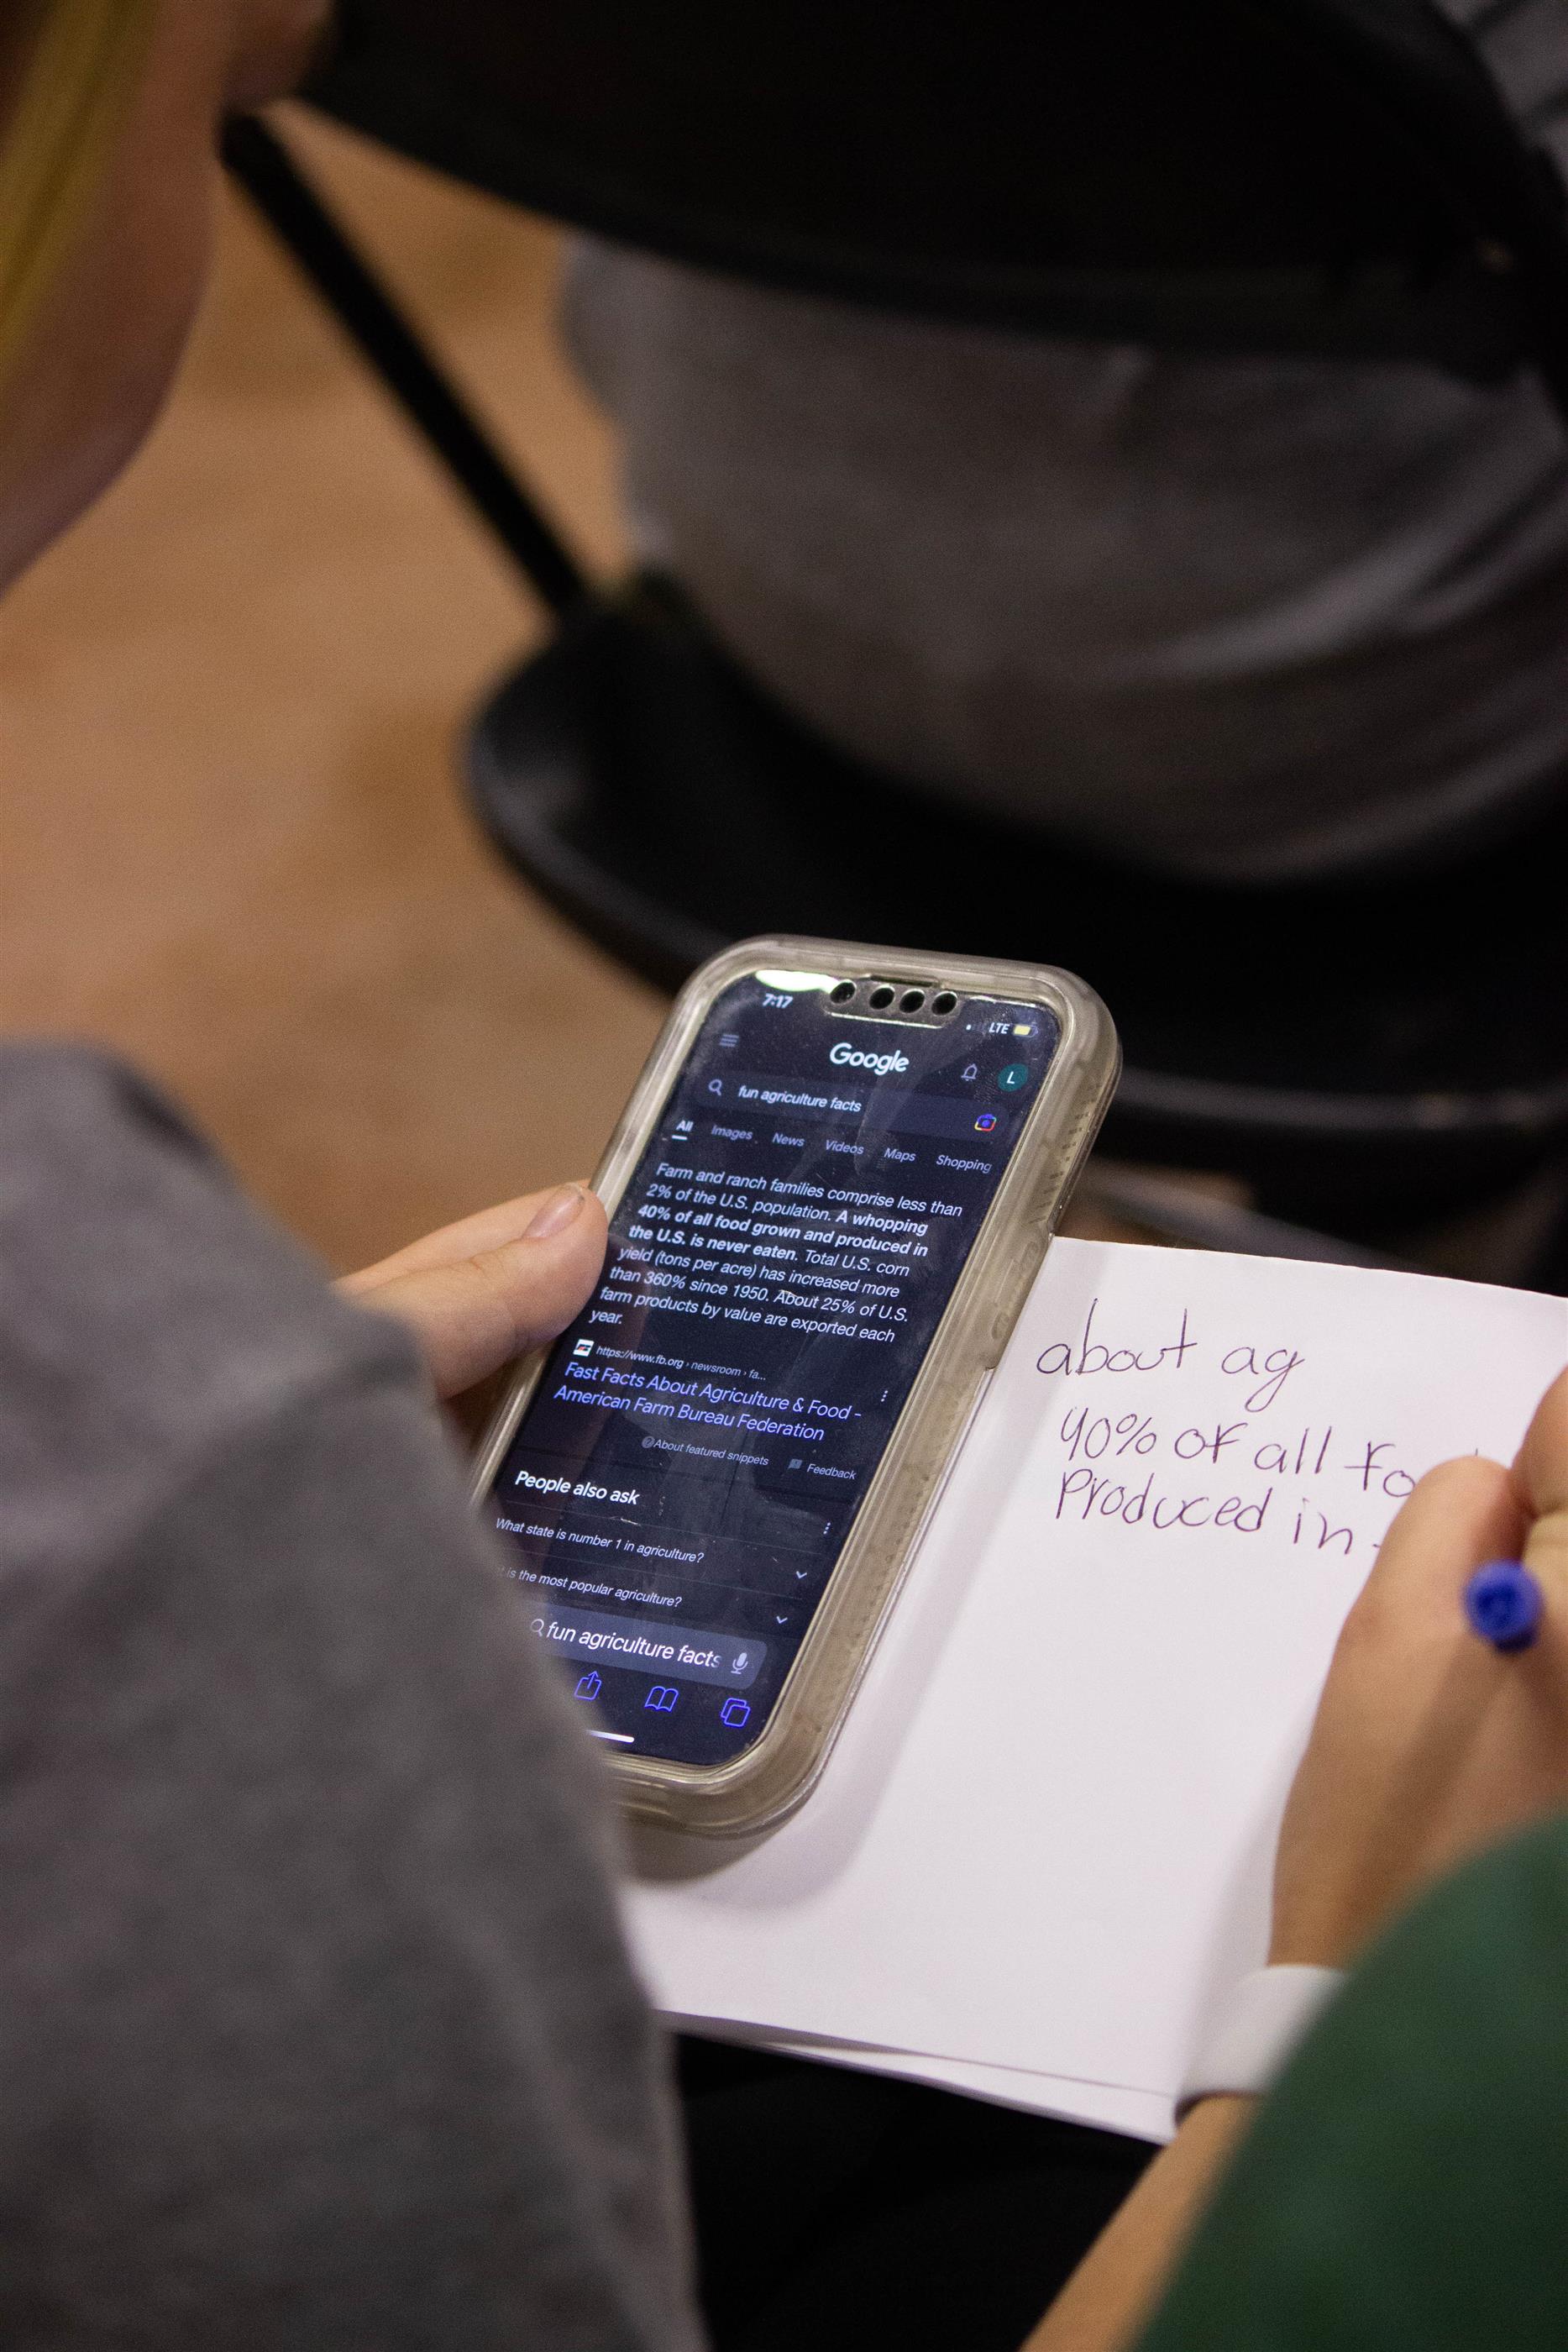 7:17 LTE
Google
L
fun agriculture facts
All Images News Videos Maps Shopping
Farm and ranch families comprise less than
2% of the U.S. population. A whopping
40% of all food grown and produced in
the U.S. is never eaten. Total U.S. corn
yield (tons per acre) has increased more
than 360% since 1950. About 25% of U.S.
farm products by value are exported each
year.
https://www.fb.org › newsroom › fa...
Fast Facts About Agriculture & Food -
American Farm Bureau Federation
About featured snippets Feedback
People also ask
What state is number 1 in agriculture?
is the most popular agriculture?
fun agriculture facts
about ag
40% of all fo
produced in